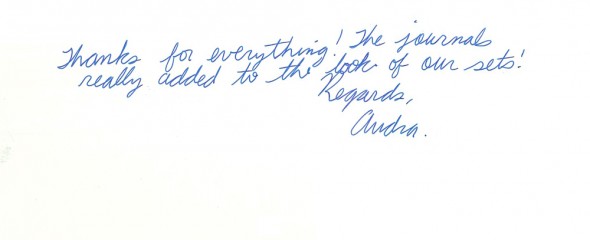 Thanks for everything! The journals
really added to the look of our sets!
Regards,
Andra.